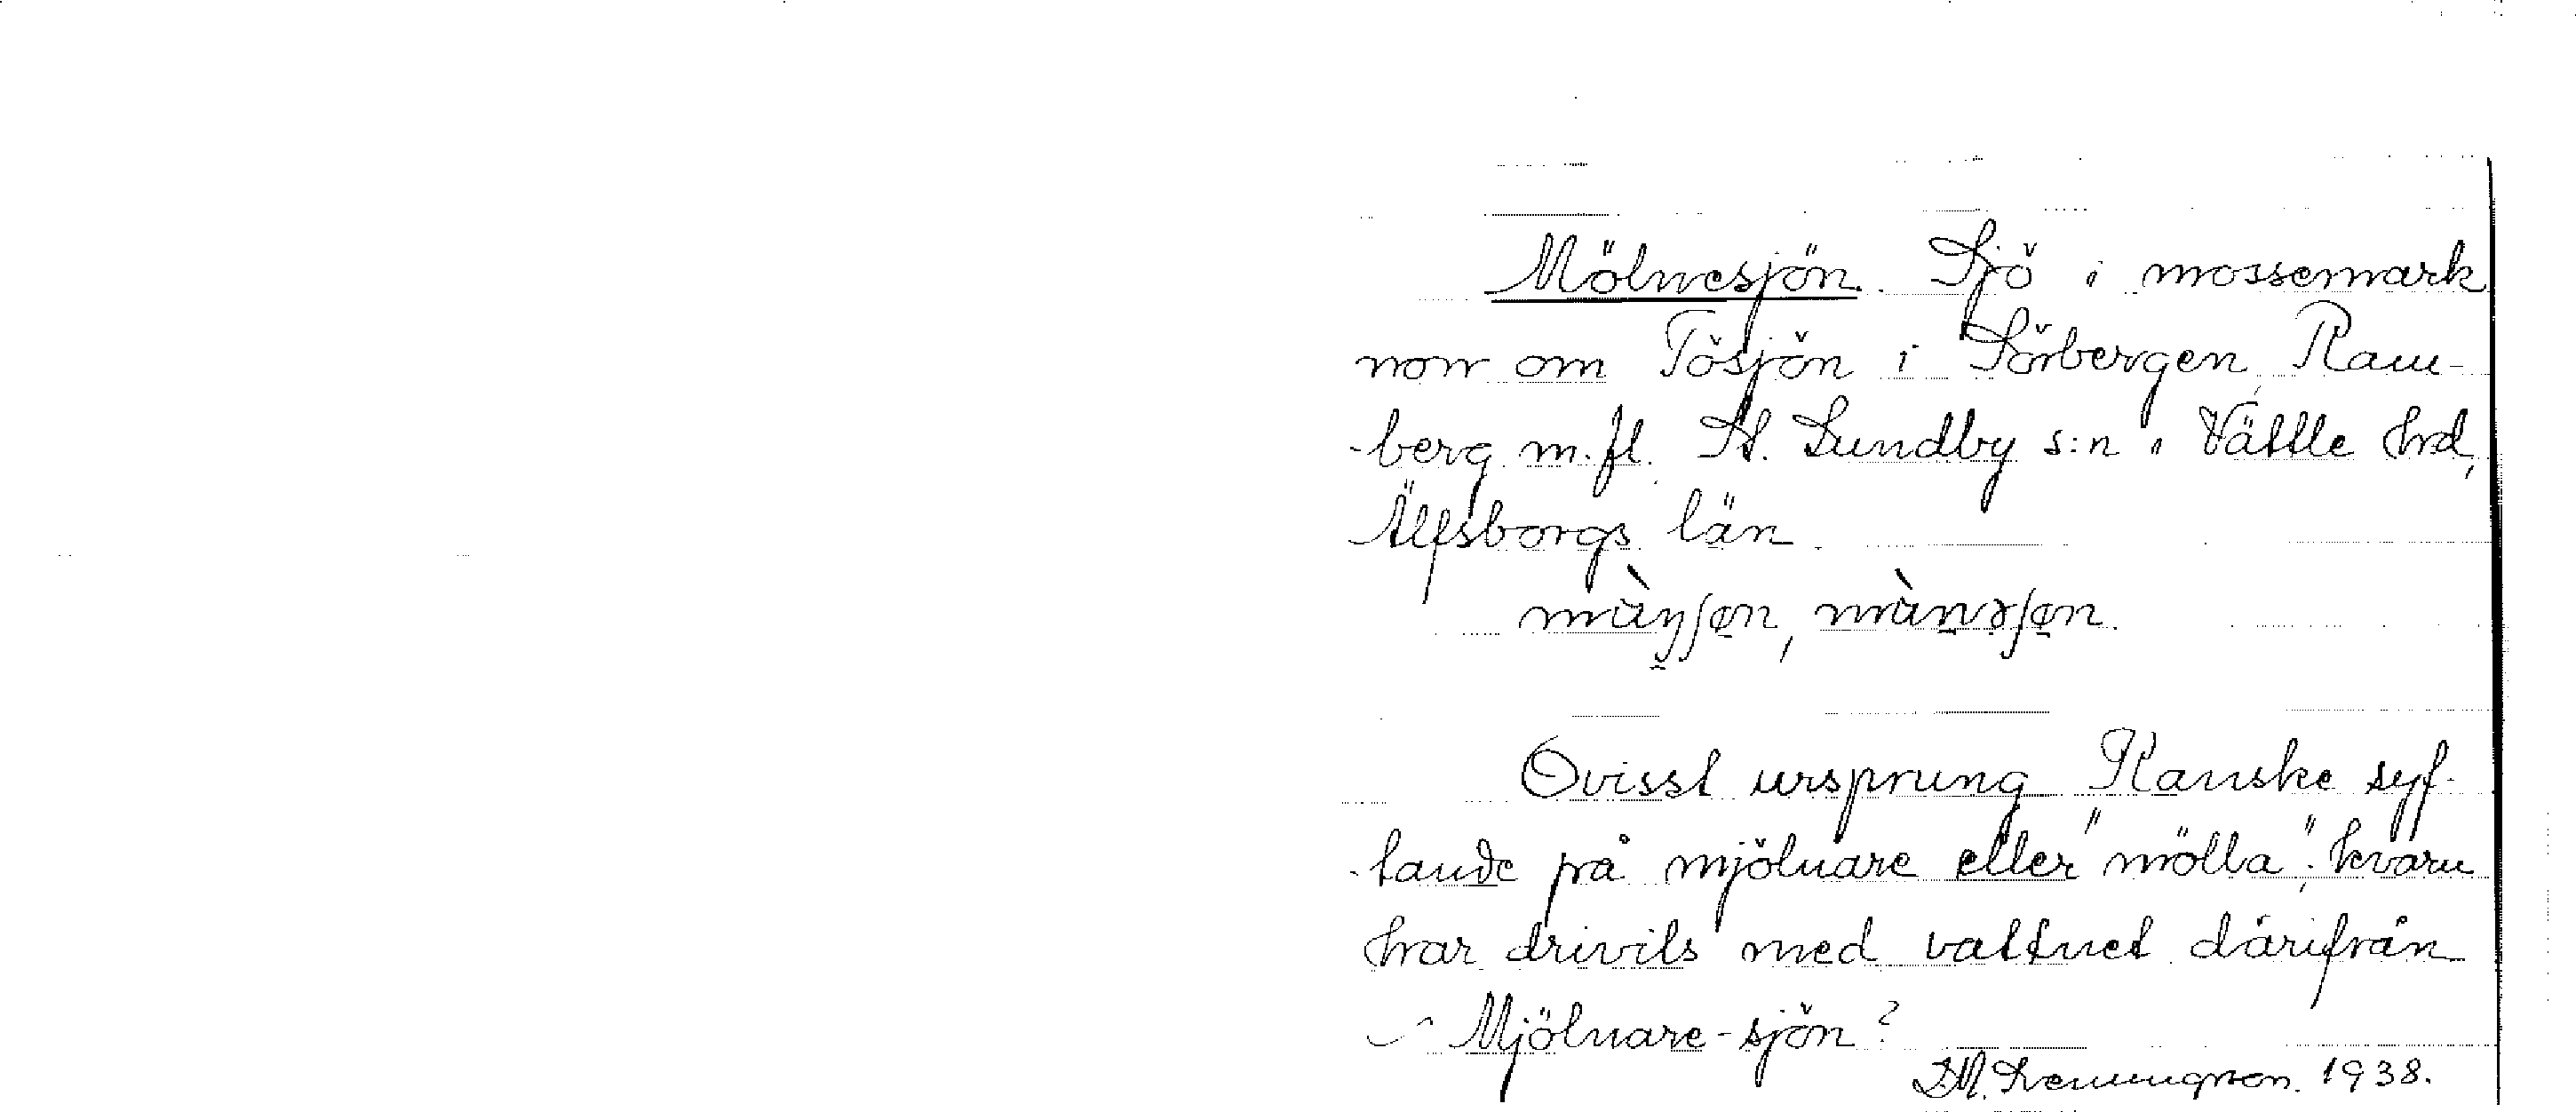 Mölnesjön. Sjö i mossemark
norr om Tösjön i Sörbergen, Ram-
berg m.fl. St. Lundby s:n i Vättle hrd,
Älfsborgs län.
Ovisst ursprung. Kanske syf-
tande på mjölnare eller "mölla"; kvarn
har drivits med vattnet därifrån
Mjölnare-sjön?
1938.